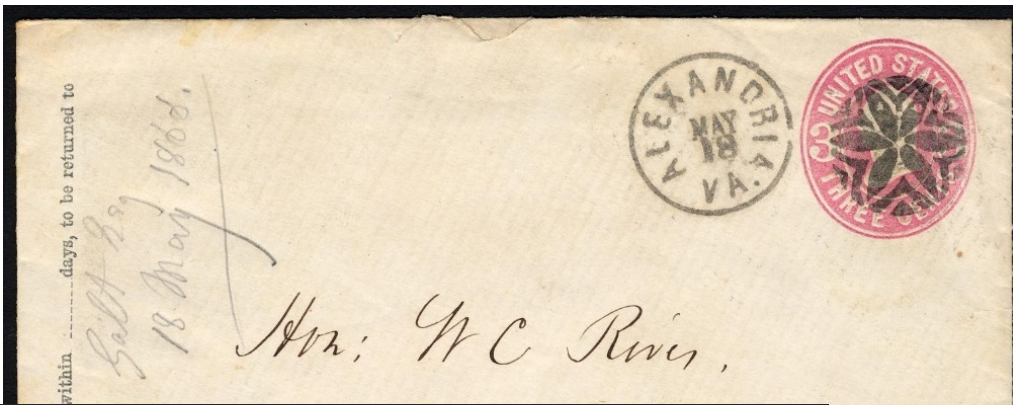 within ......days, to be returned to
18 May 1868.
ALEXANDRIA
MAY
18
VA.
UNITED STATES
3
THREE CENTS
Hon: W C Rives,